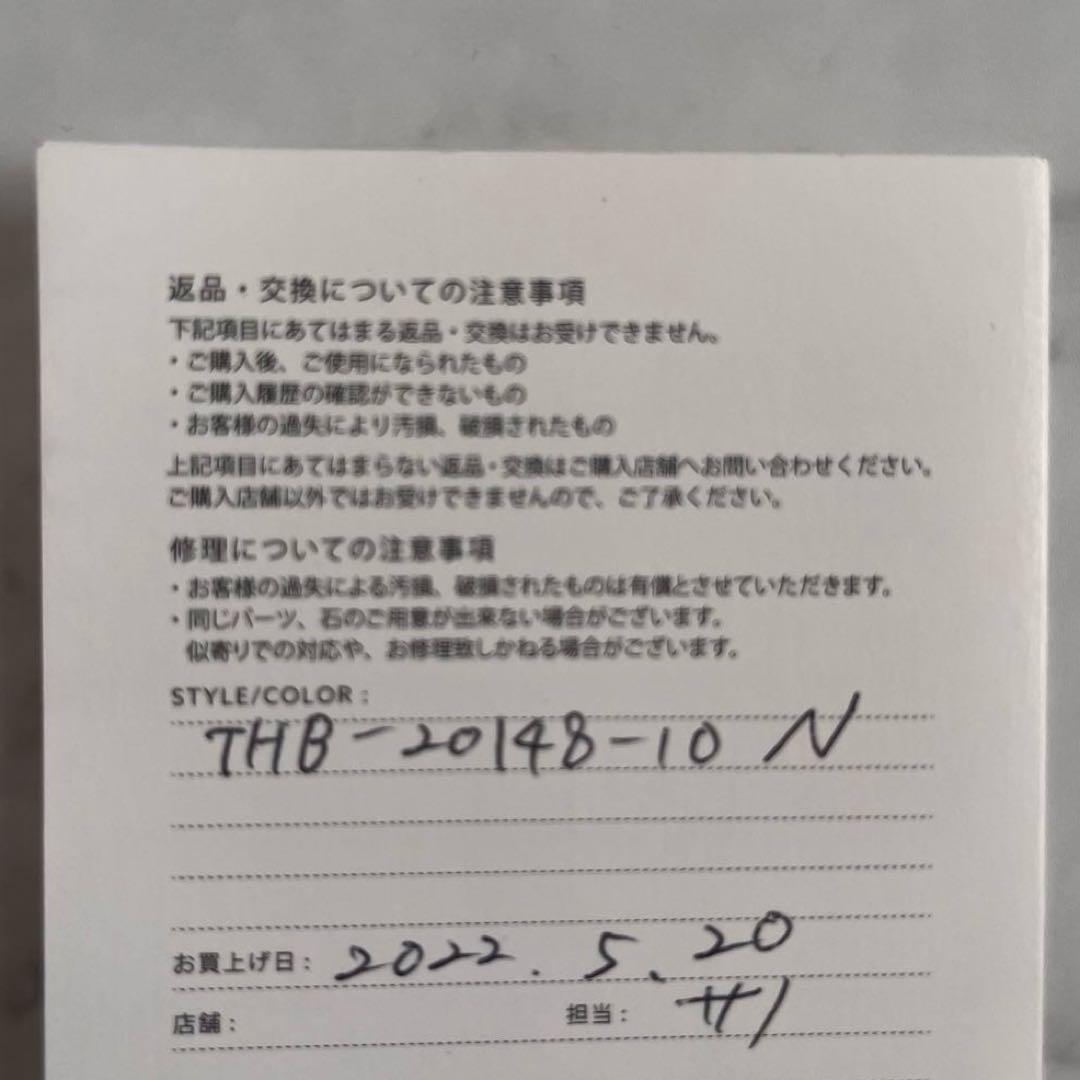 返品・交換についての注意事項
下記項目にあてはまる返品・交換はお受けできません。
・ご購入後、ご使用になられたもの
・ご購入履歴の確認ができないもの
・お客様の過失により汚損、破損されたもの
上記項目にあてはまらない返品・交換はご購入店舗へお問い合わせください。
ご購入店舗以外ではお受けできませんので、ご了承ください。
修理についての注意事項
・お客様の過失による汚損、破損されたものは有償とさせていただきます。
・同じパーツ、石のご用意が出来ない場合がございます。
似寄りでの対応や、お修理致しかねる場合がございます。
STYLE/COLOR :
THB-20148-10 N
お買上げ日 : 2022. 5. 20
店舗 : 担当 :